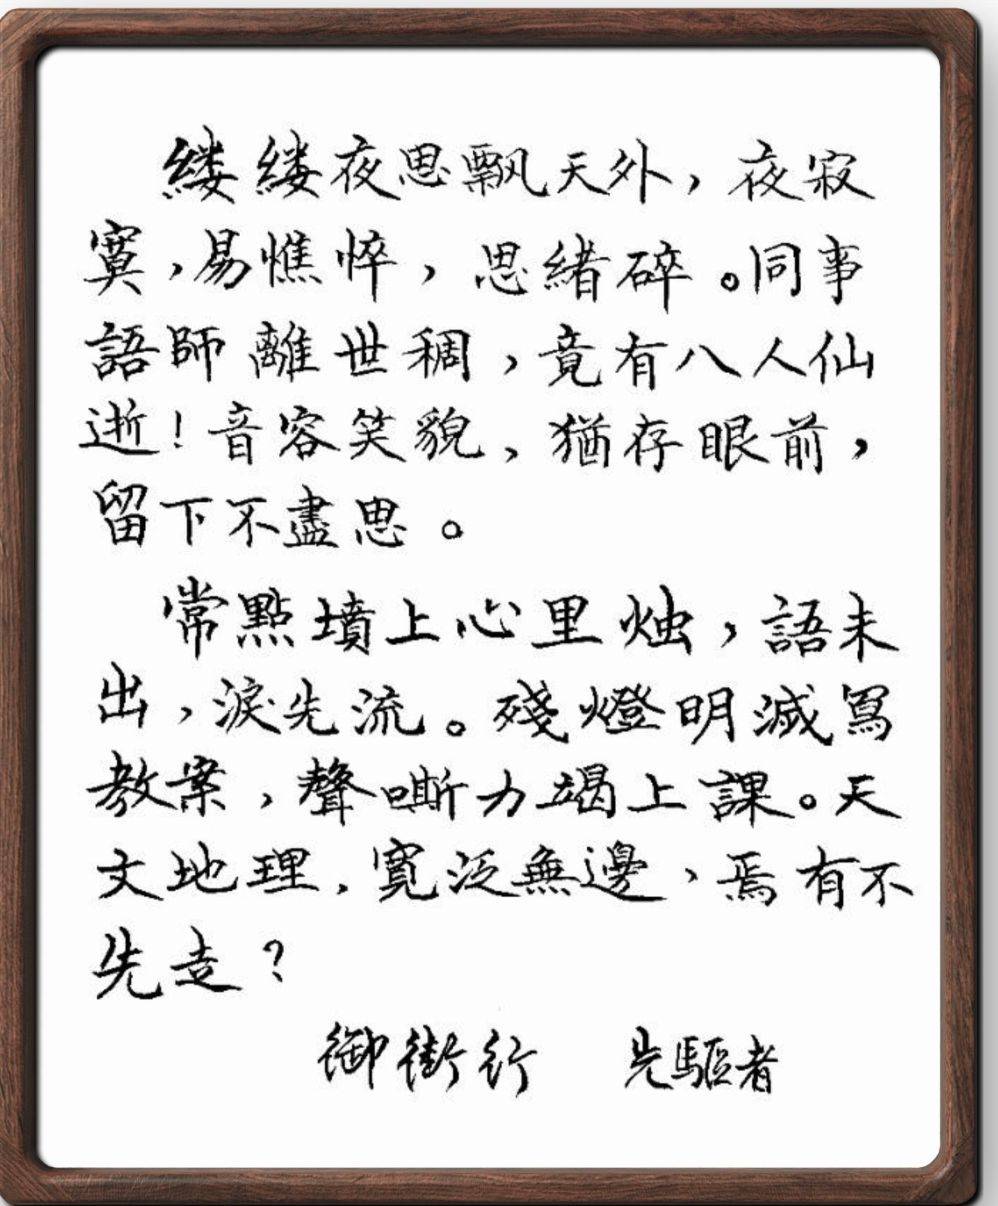 缕缕夜思飄天外，夜寂
寞，易憔悴，思緒碎。同事
語師離世稠，竟有八人仙
逝！音容笑貌，猶存眼前，
留下不盡思。
常點墳上心里烛，語未
出，淚先流。殘燈明滅寫
教案，聲嘶力竭上課。天
文地理，寬泛無邊，焉有不
先走？
御街行 先驅者